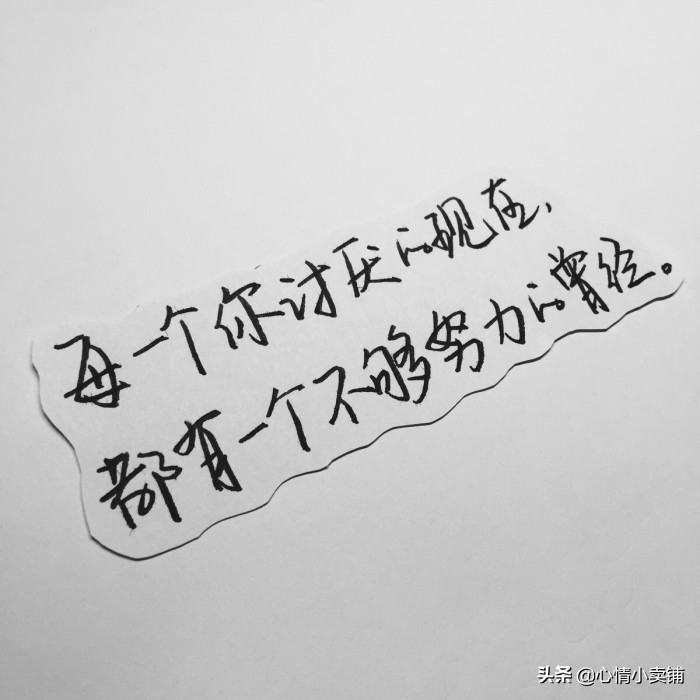 每一个你讨厌的现在、
都有一个不够努力的曾经。
头条 @心情小卖铺